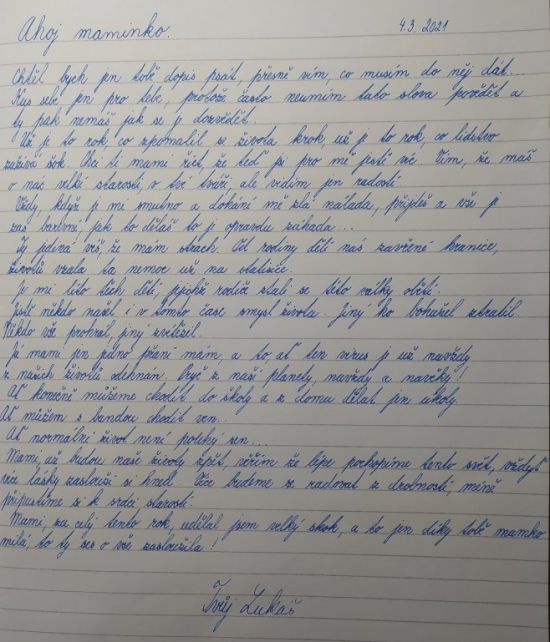 Ahoj maminko.
4.3. 2021
Chtěl bych jen tobě dopis psát, přesně vím, co musím do něj dát...
Kus sebe jen pro tebe, protože často neumím tato slova povědět a
ty pak nemáš jak se je dozvědět.
Už je to rok, co zpomalil se života krok, už je to rok, co lidstvo
zažívá šok. Chci ti mami říct, že teď jsi pro mě ještě víc. Vím, že máš
o nás velké starosti, v tvé tváři, ale vidím jen radosti.
Vždy, když je mi smutno a dohání mě zlá nálada, přijdeš a vše je
zas barevné, jak to děláš to je opravdu záhada...
Ty jediná víš, že mám strach. Od rodiny dělí nás zavřené hranice,
životů vzala ta nemoc už na statisíce.
Je mi líto těch dětí, jejichž rodiče stali se této války obětí.
Jistě někdo našel i v tomto čase smysl života. Jiný ho bohužel ztratil.
Někdo vše prohrál, jiný zvítězil.
Já mami jen jedno přání mám, a to ať ten virus je už navždy
z našich životů odehnán. Pryč z naší planety, navždy a navěky!
Ať konečně můžeme chodit do školy a z domu dělat jen úkoly.
Ať můžem s bandou chodit ven..
Ať normální život není pouhý sen...
Mami, až budou naše životy zpět, věřím že lépe pochopíme tento svět, vždyť
více lásky zaslouží si hned. Více budeme se radovat z drobností, méně
připustíme si k srdci starostí.
Mami, za celý tento rok, udělal jsem velký skok, a to jen díky tobě mamko
milá, to ty ses o vše zasloužila!
Tvůj Lukáš